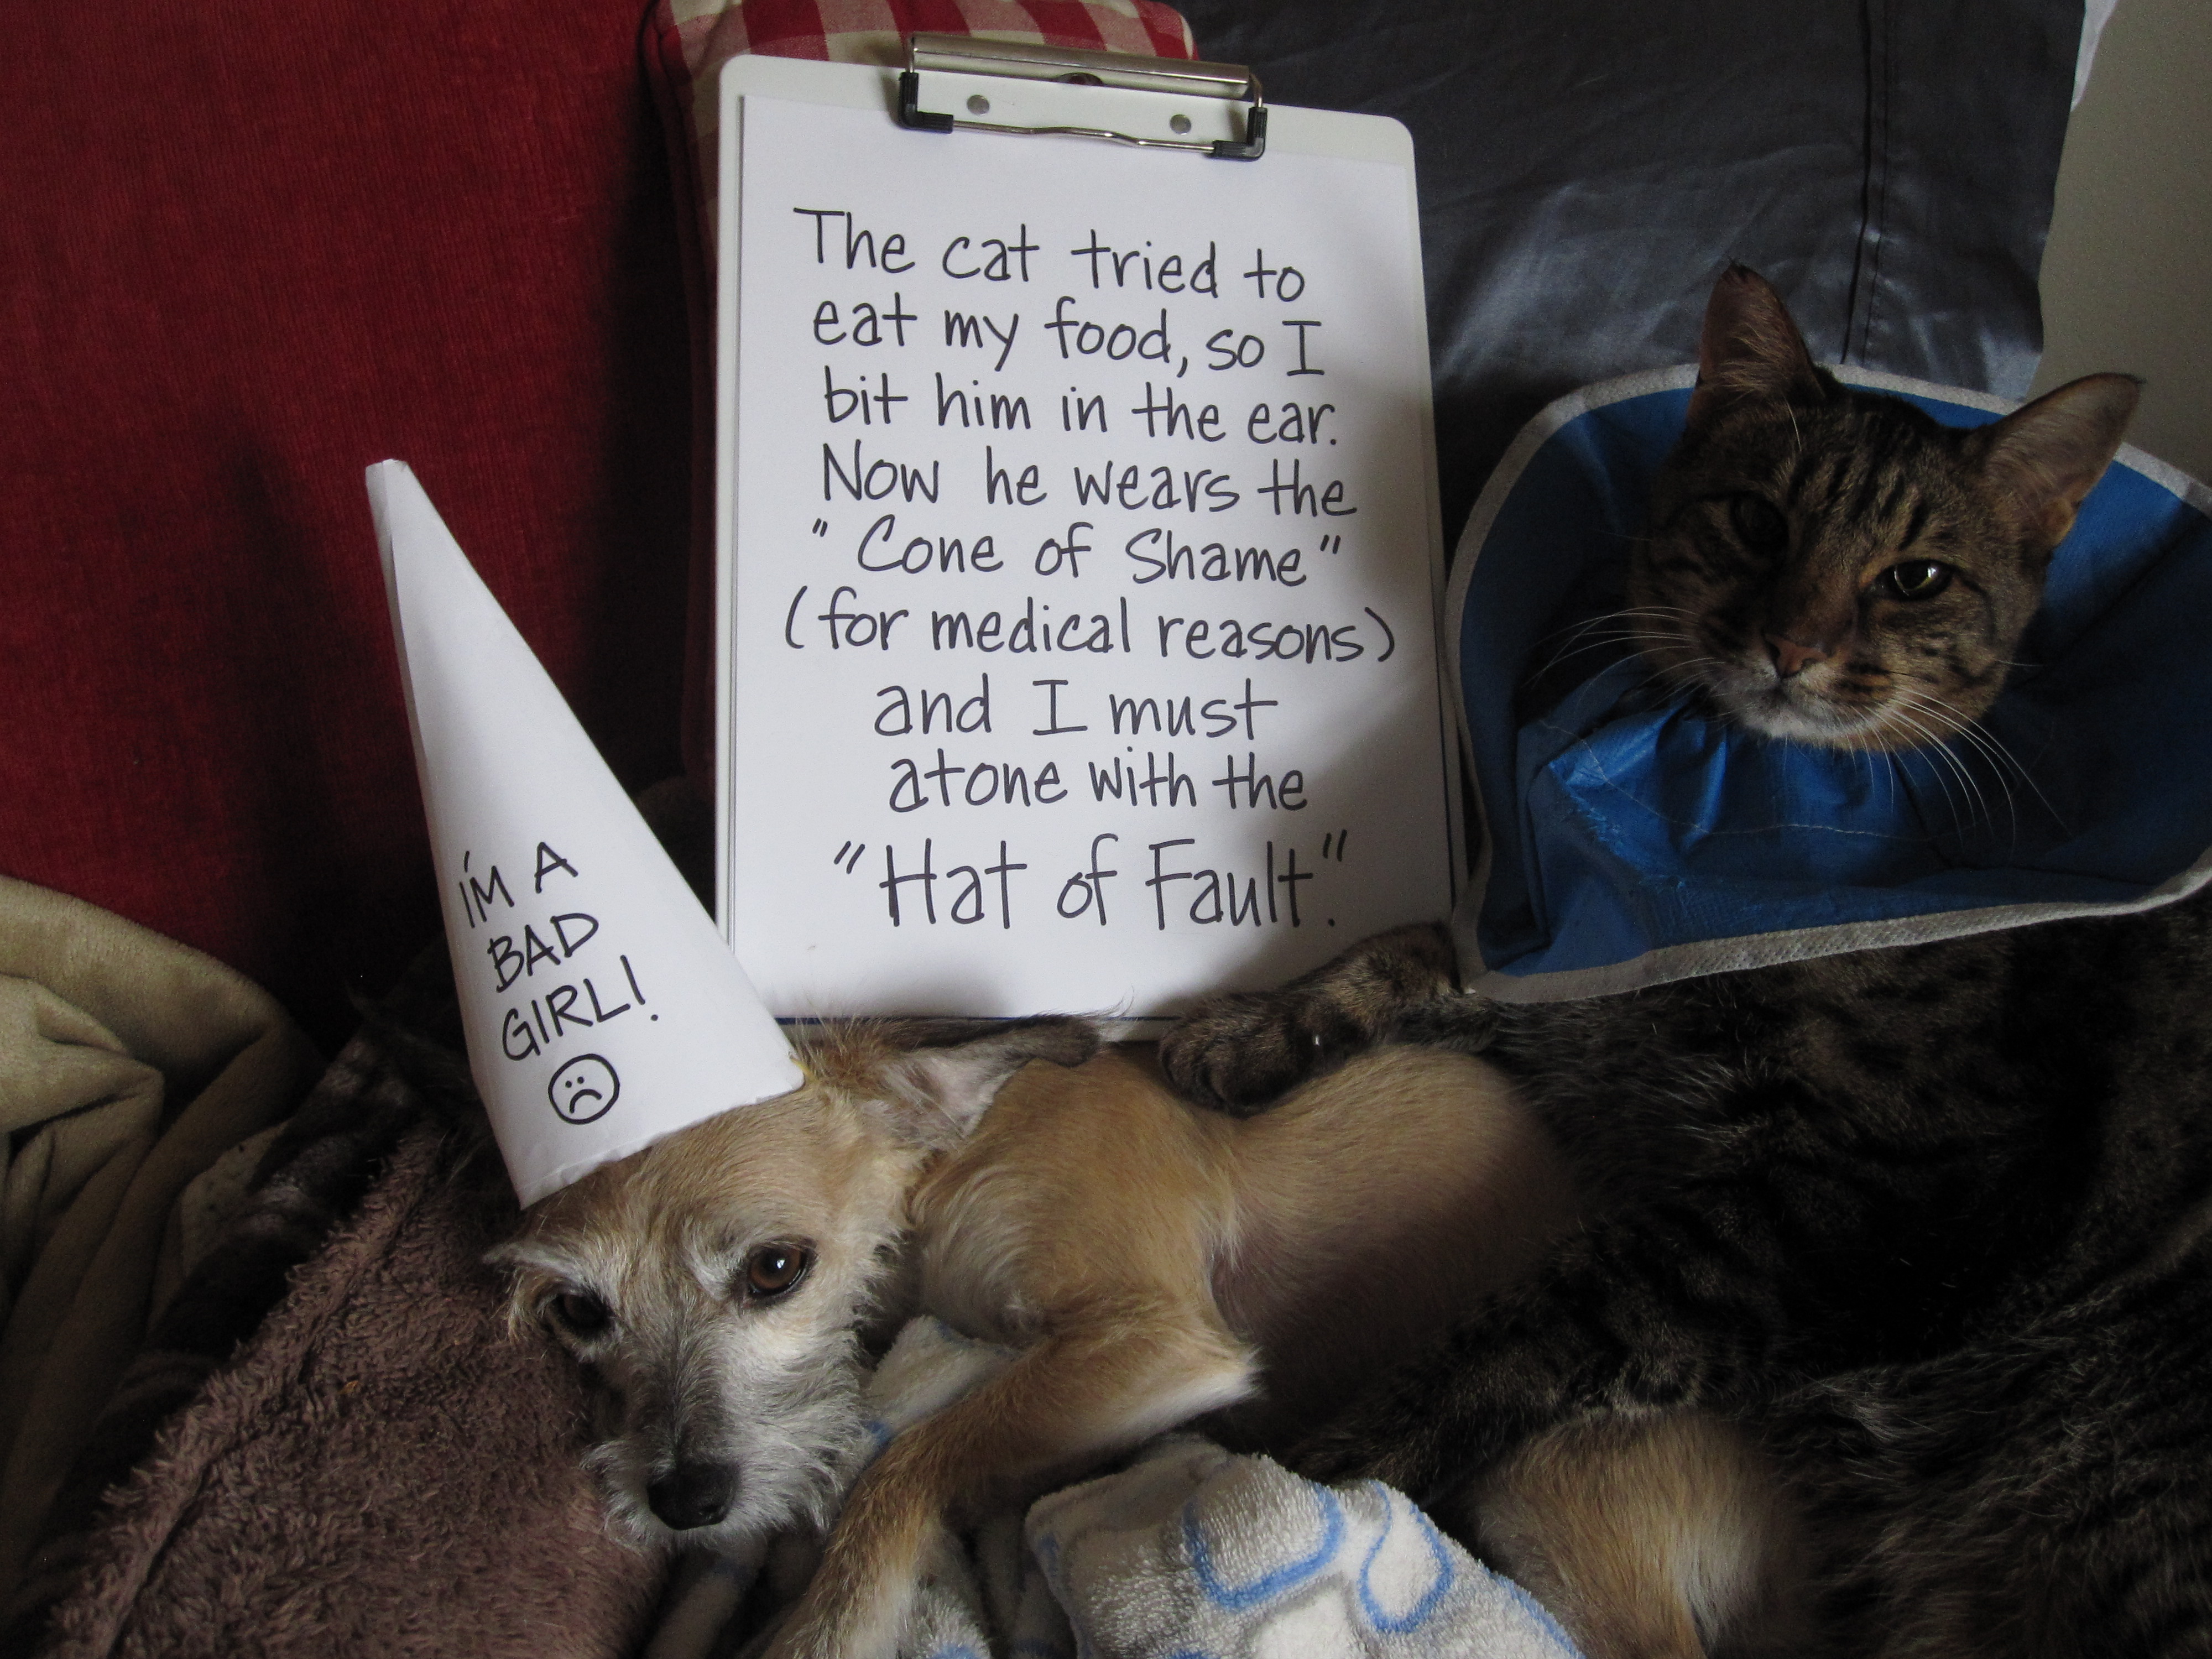 The cat tried to
eat my food, so I
bit him in the ear.
Now he wears the
"Cone of Shame"
(for medical reasons)
and I must
atone with the
"Hat of Fault".
I'M A
BAD
GIRL!